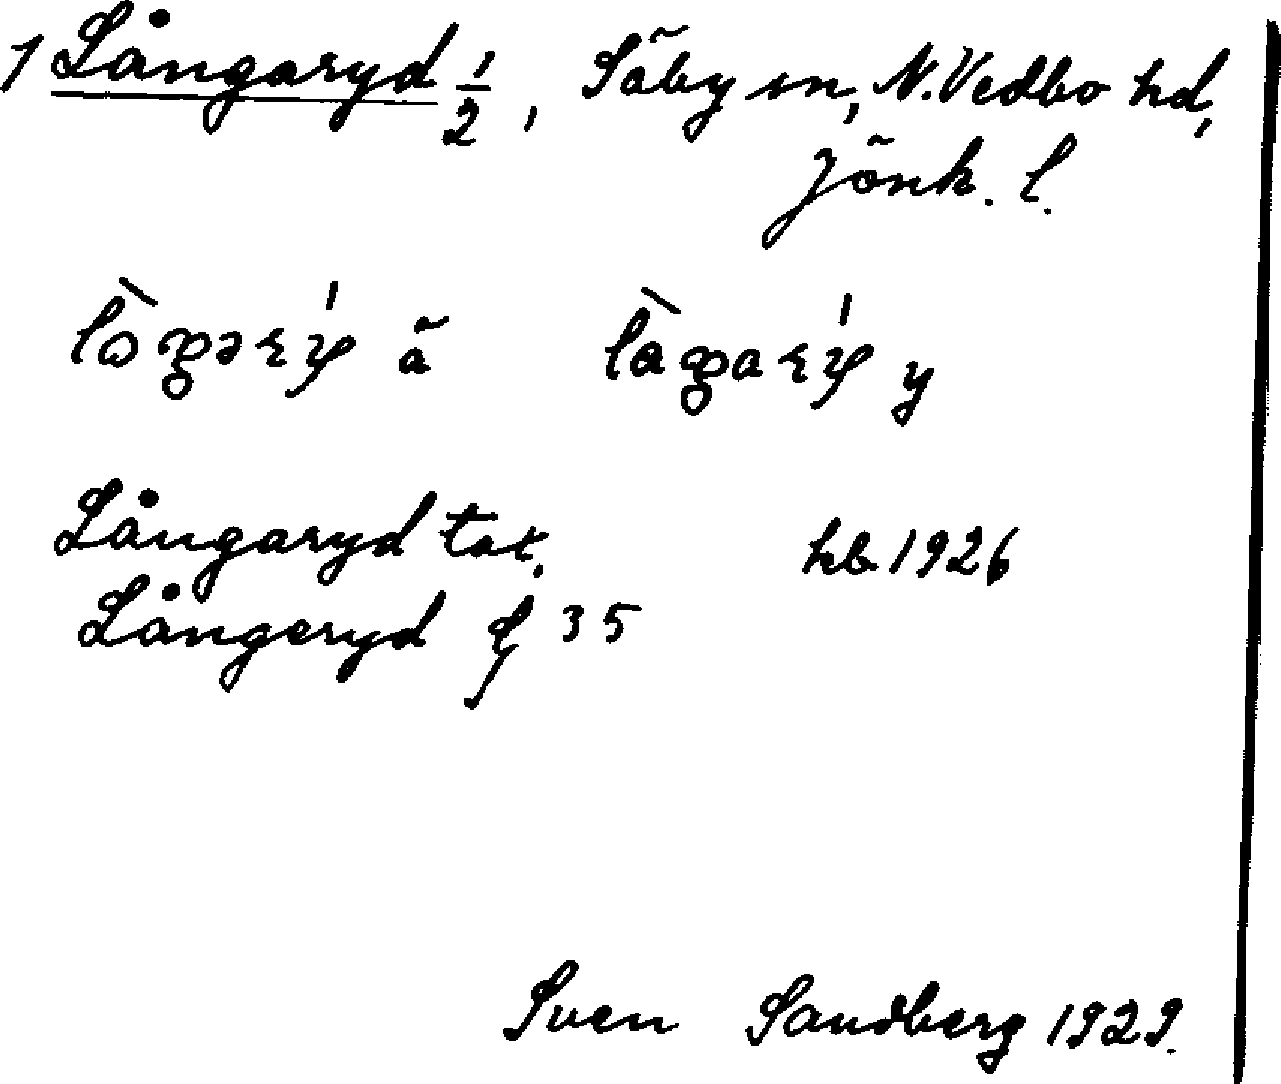 1 Långaryd 1/2, Säby sn, N. Vedbo hd,
Jönk. l.
ä y
Långaryd tot. hb. 1926
Långeryd 35
Sven Sandberg 1929.